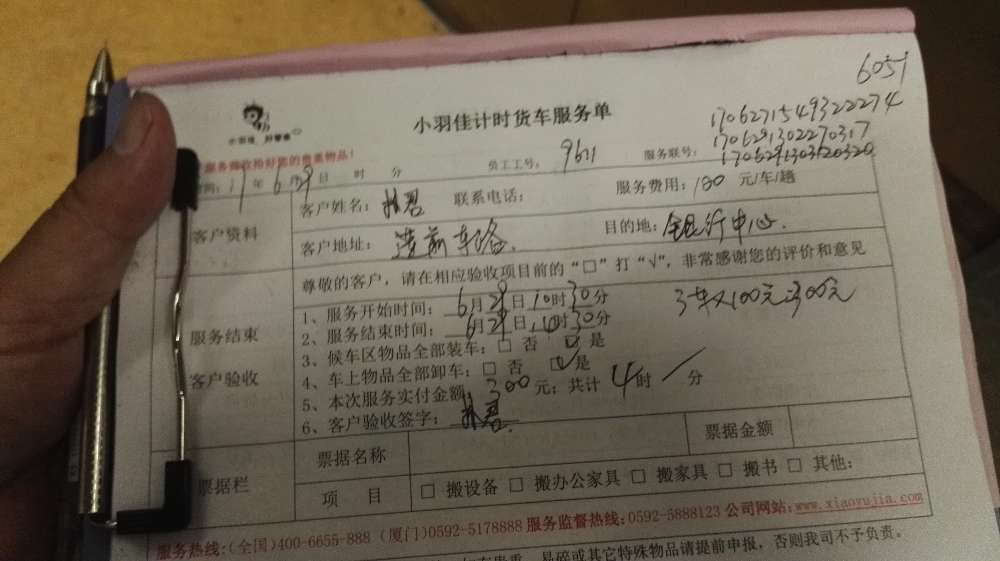 6051
小羽佳计时货车服务单
小羽佳 好管家
170627154932 2274
170629130227 0317
服务联号: 170629130320320
服务做收拾好您的贵重物品!
时间: 17年 6月29日 时 分 员工工号: 9611
客户资料
客户姓名: 联系电话: 服务费用: 100 元/车/趟
客户地址: 目的地: 银行中心
尊敬的客户, 请在相应验收项目前的“□”打“√”, 非常感谢您的评价和意见
服务结束
客户验收
1、服务开始时间: 6月29日 10时30分 3车x100元=300元
2、服务结束时间: 6月29日, 时30分
3、候车区物品全部装车: □ 否 ☑ 是
4、车上物品全部卸车: □ 否 ☑ 是
5、本次服务实付金额: 300元; 共计 4 时 / 分
6、客户验收签字:
票据栏
票据名称 票据金额
项 目 □ 搬设备 □ 搬办公家具 □ 搬家具 □ 搬书 □ 其他:
服务热线:(全国)400-6655-888 (厦门)0592-5178888 服务监督热线:0592-5888123 公司网站:www.xiaoyujia.com
易碎或其它特殊物品请提前申报, 否则我司不予负责。